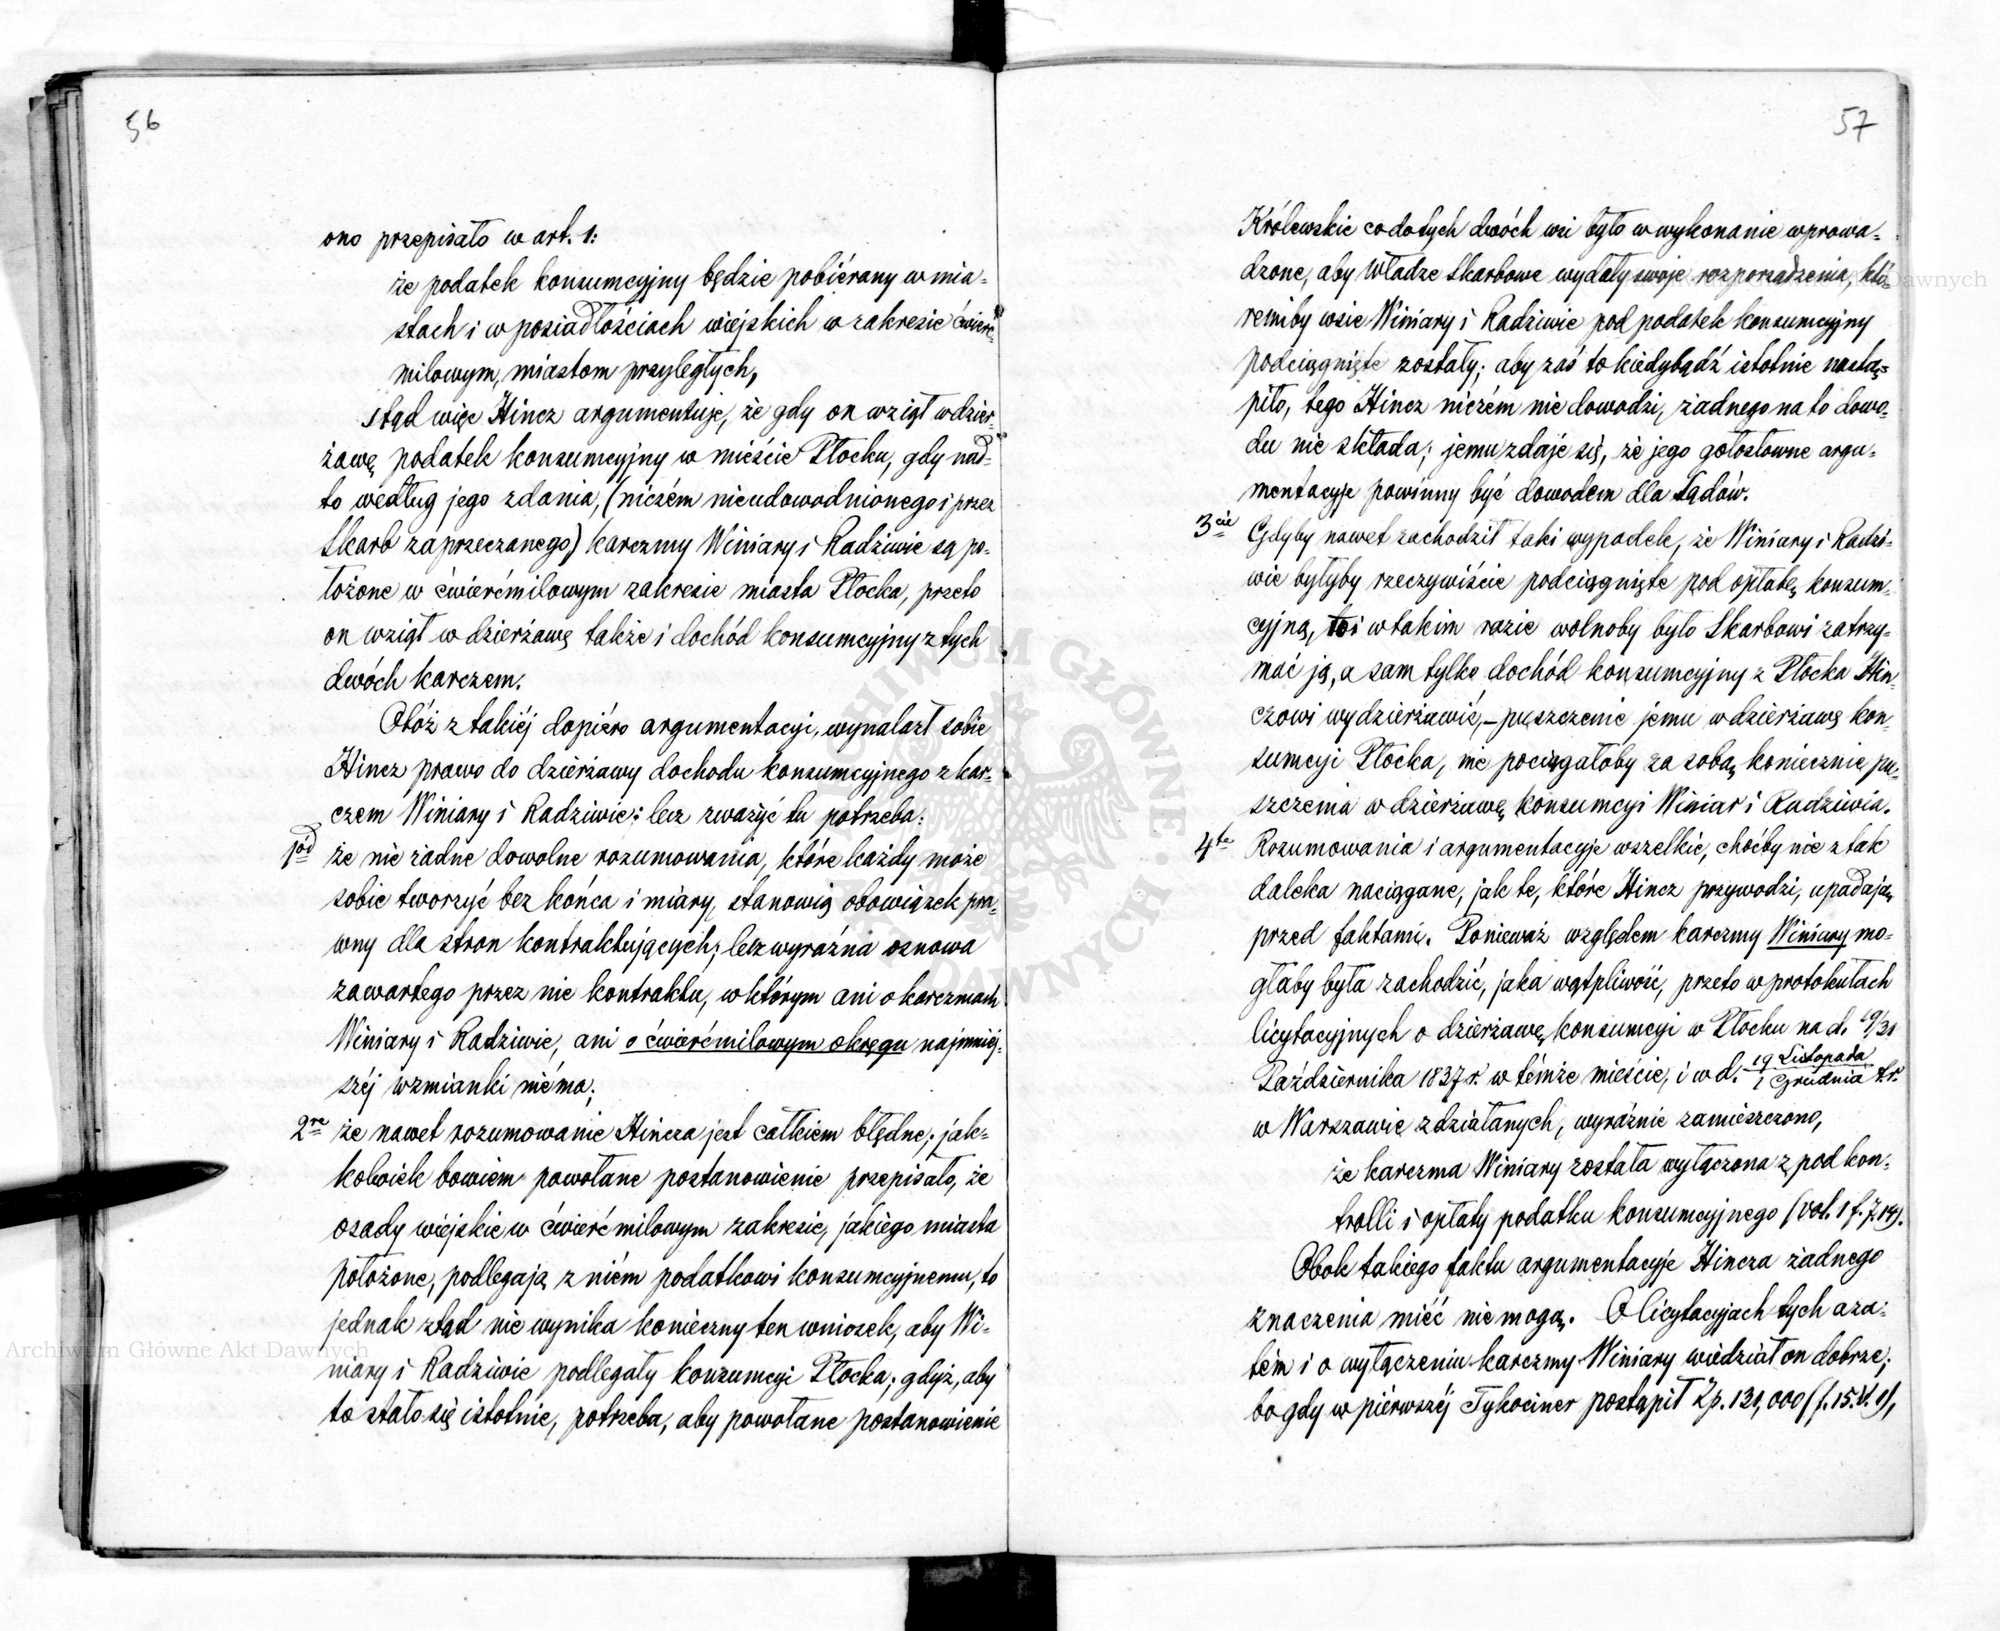 56
ono przepisało w art. 1:
że podatek konsumcyjny będzie pobiérany w mia-
stach i w posiadłościach wiejskich w zakresie ćwierć-
milowym, miastom przyległych,
stąd więc Hincz argumentuje, że gdy on wziął w dzier-
żawę podatek konsumcyjny w mieście Płocku, gdy nad-
to według jego zdania, (niczém nieudowodnionego i przez
Skarb zaprzeczanego) karczmy Winiary i Radziwie są po-
łożone w ćwierćmilowym zakresie miasta Płocka, przeto
on wziął w dzierżawę także i dochód konsumcyjny z tych
dwóch karczem.
Otóż z takiéj dopiéro argumentacyi, wynalazł sobie
Hincz prawo do dzierżawy dochodu konsumcyjnego z kar-
czem Winiary i Radziwie: lecz zważyć tu potrzeba:
1ód że nie żadne dowolne rozumowania, które każdy może
sobie tworzyć bez końca i miary, stanowią obowiązek pra-
wny dla stron kontraktujących; lecz wyraźna osnowa
zawartego przez nie kontraktu, w którym ani o karczmach
Winiary i Radziwie, ani o ćwierćmilowym okręgu najmniéj-
széj wzmianki niéma;
2re że nawet rozumowanie Hincza jest całkiem błędne; jak-
kolwiek bowiem powołane postanowienie przepisało, że
osady wiejskie w ćwierćmilowym zakresie, jakiego miasta
położone, podlegają z niém podatkowi konsumcyjnemu, to
jednak ztąd nie wynika konieczny ten wniosek, aby Wi-
niary i Radziwie podlegały konsumcyi Płocka; gdyż, aby
to stało się istotnie, potrzeba, aby powołane postanowienie
57
Królewskie co do tych dwóch wsi było w wykonanie wprowa-
dzone, aby Władze Skarbowe wydały swoje rozporządzenia, któ-
remiby wsie Winiary i Radziwie pod podatek konsumcyjny
podciągnięte zostały; aby zaś to kiedybądź istotnie nastą-
piło, tego Hincz niczém nie dowodzi, żadnego na to dowo-
du nie składa; jemu zdaje się, że jego gołosłowne argu-
mentacyje powinny być dowodem dla Sądów.
3cie Gdyby nawet zachodził taki wypadek, że Winiary i Radzi-
wie byłyby rzeczywiście podciągnięte pod opłatę konsum-
cyjną, to i w takim razie wolnoby było Skarbowi zatrzy-
mać ją, a sam tylko dochód konsumcyjny z Płocka Hin-
czowi wydzierżawić,–puszczenie jemu w dzierżawę kon-
sumcyi Płocka, nie pociągałoby za sobą koniecznie pu-
szczenia w dzierżawę konsumcyi Winiar i Radziwia.
4te Rozumowania i argumentacyje wszelkie, choćby nie z tak
daleka naciągane, jak te, które Hincz przywodzi, upadają
przed faktami. Ponieważ względem karczmy Winiary mo-
głaby była zachodzić, jaka wątpliwość, przeto w protokułach
licytacyjnych o dzierżawę konsumcyi w Płocku na d. 19/31
Października 1837 r. w témże mieście, i w d. 19 Listopada/1 Grudnia t.r.
w Warszawie zdziałanych, wyraźnie zamieszczono,
że karczma Winiary została wyłączona z pod kon-
trolli i opłaty podatku konsumcyjnego (vol. 1 f. 7.14).
Obok takiego faktu argumentacyje Hincza żadnego
znaczenia miéć nie mogą. O licytacyjach tych aza-
tém i o wyłączeniu karczmy Winiary wiedział on dobrze;
bo gdy w piérwszéj Tykociner postąpił Zp. 131,000 (f. 15. V. 1),
Archiwum Główne Akt Dawnych
ARCHIWUM GŁÓWNE AKT DAWNYCH